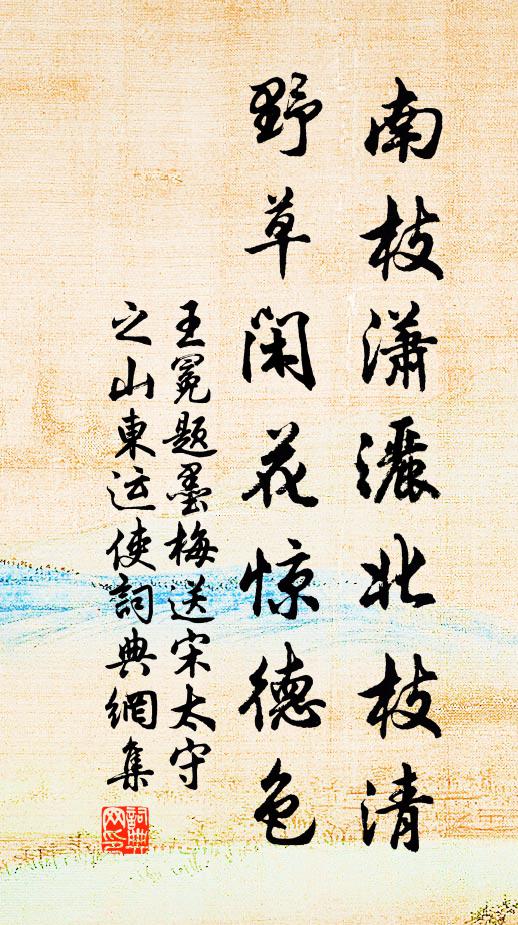 南枝瀟灑北枝清
野草閑花惊德色
王冕题墨梅送宋太守
之山東运使詞典網集
詞典网印